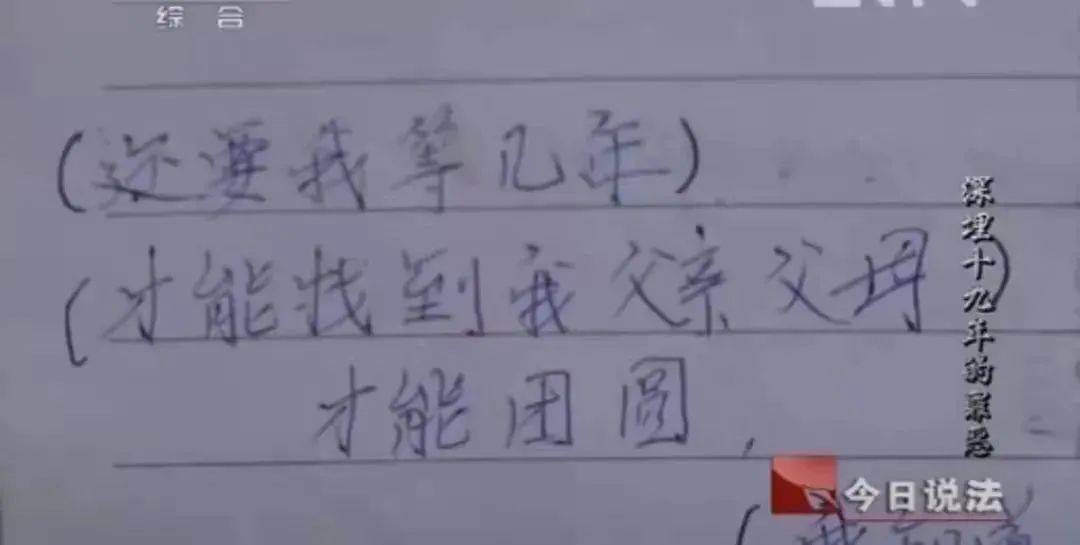 综合
(还要我等几年)
(才能找到我父亲父母)
才能团圆,
深埋十九年的罪恶
今日说法
(我知道